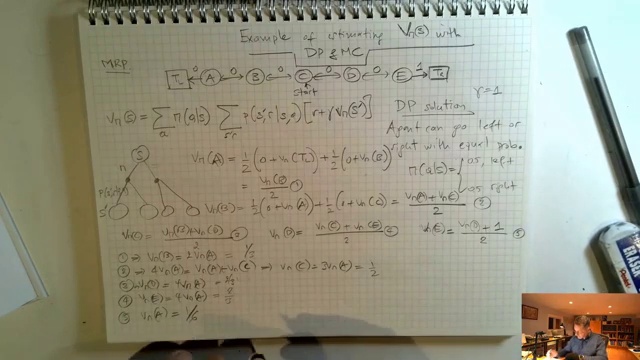 Example of estimating Vπ(s) with
DP & MC
MRP
TL 0 A 0 B 0 C 0 D 0 E 1 TR
start
Vπ(s) = Σa π(a|s) Σs',r P(s',r|s,a) [r+γVπ(s')]
DP solution γ=1
Agent can go left or
right with equal prob.
π(a|s)= { 0.5, left
0.5 right
S
π
s'
Vπ(A) = 1/2 (0+Vπ(TL)) + 1/2 (0+Vπ(B))
= Vπ(B)/2 ①
Vπ(B) = 1/2 (0+Vπ(A)) + 1/2 (0+Vπ(C)) = 
②
③ Vπ(D) = Vπ(C) + Vπ(E) / 2 ④ Vπ(E) = Vπ(D) + 1 / 2 ⑤
① ⇒ Vπ(B) = 2Vπ(A)
② ⇒ 4Vπ(A) = Vπ(A)+Vπ(C) ⇒ Vπ(C) = 3Vπ(A) = 1/2
③ = 4Vπ(A)
④ Vπ(E)
⑤ Vπ(A) = 1/6
ERASER